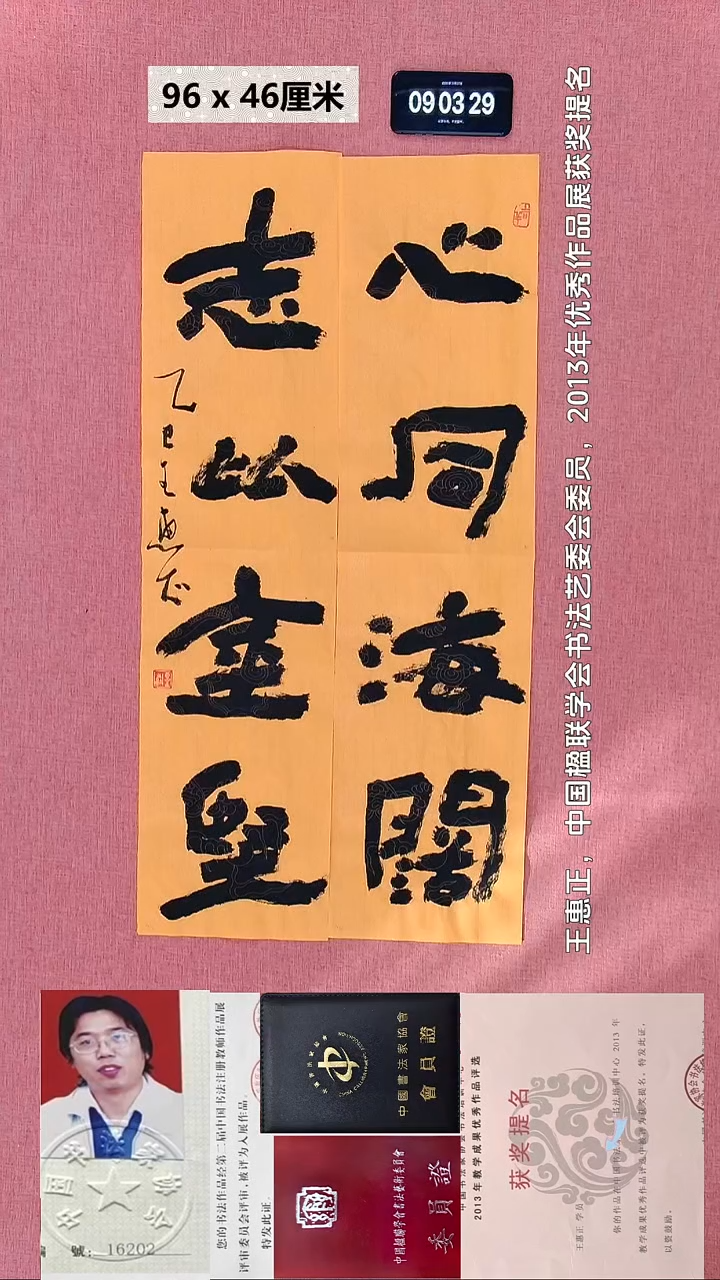 96 x 46厘米
09 03 29
心同海闊
志比金堅
乙巳王惠正
王惠正，中国楹联学会书法艺委会委员，2013年优秀作品展获奖提名
號：16202
您的书法作品经第二届中国书法注册教师作品展
评审委员会评审,被评为入展作品。
特发此证。
中國書法家協會
會員證
中國楹聯學會書法藝術委員會
委員證
2013 年教学成果优秀作品评选
获奖提名
王惠正 学员
你的作品在中国书法 书法培训中心 2013 年
教学成果优秀作品评选中被评为获奖提名。特发此证。
以资鼓励。